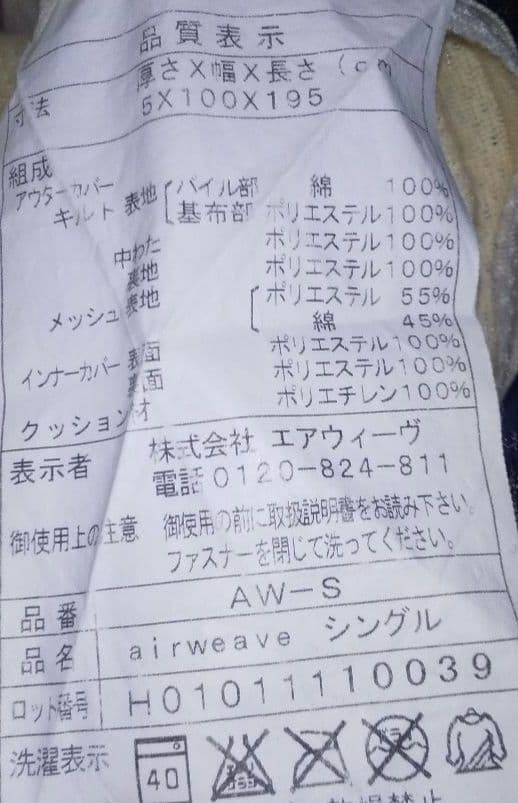 品質表示
寸法 厚さX幅X長さ(cm
5X100X195
組成
アウターカバー
キルト 表地 パイル部 綿 100%
基布部 ポリエステル100%
中わた ポリエステル100%
裏地 ポリエステル100%
メッシュ表地 ポリエステル 55%
綿 45%
インナーカバー 表面 ポリエステル100%
裏面 ポリエステル100%
クッション材 ポリエチレン100%
表示者 株式会社 エアウィーヴ
電話0120-824-811
御使用上の注意 御使用の前に取扱説明書をお読み下さい。
ファスナーを閉じて洗ってください。
品番 AW-S
品名 airweave シングル
ロット番号 H01011110039
洗濯表示 40